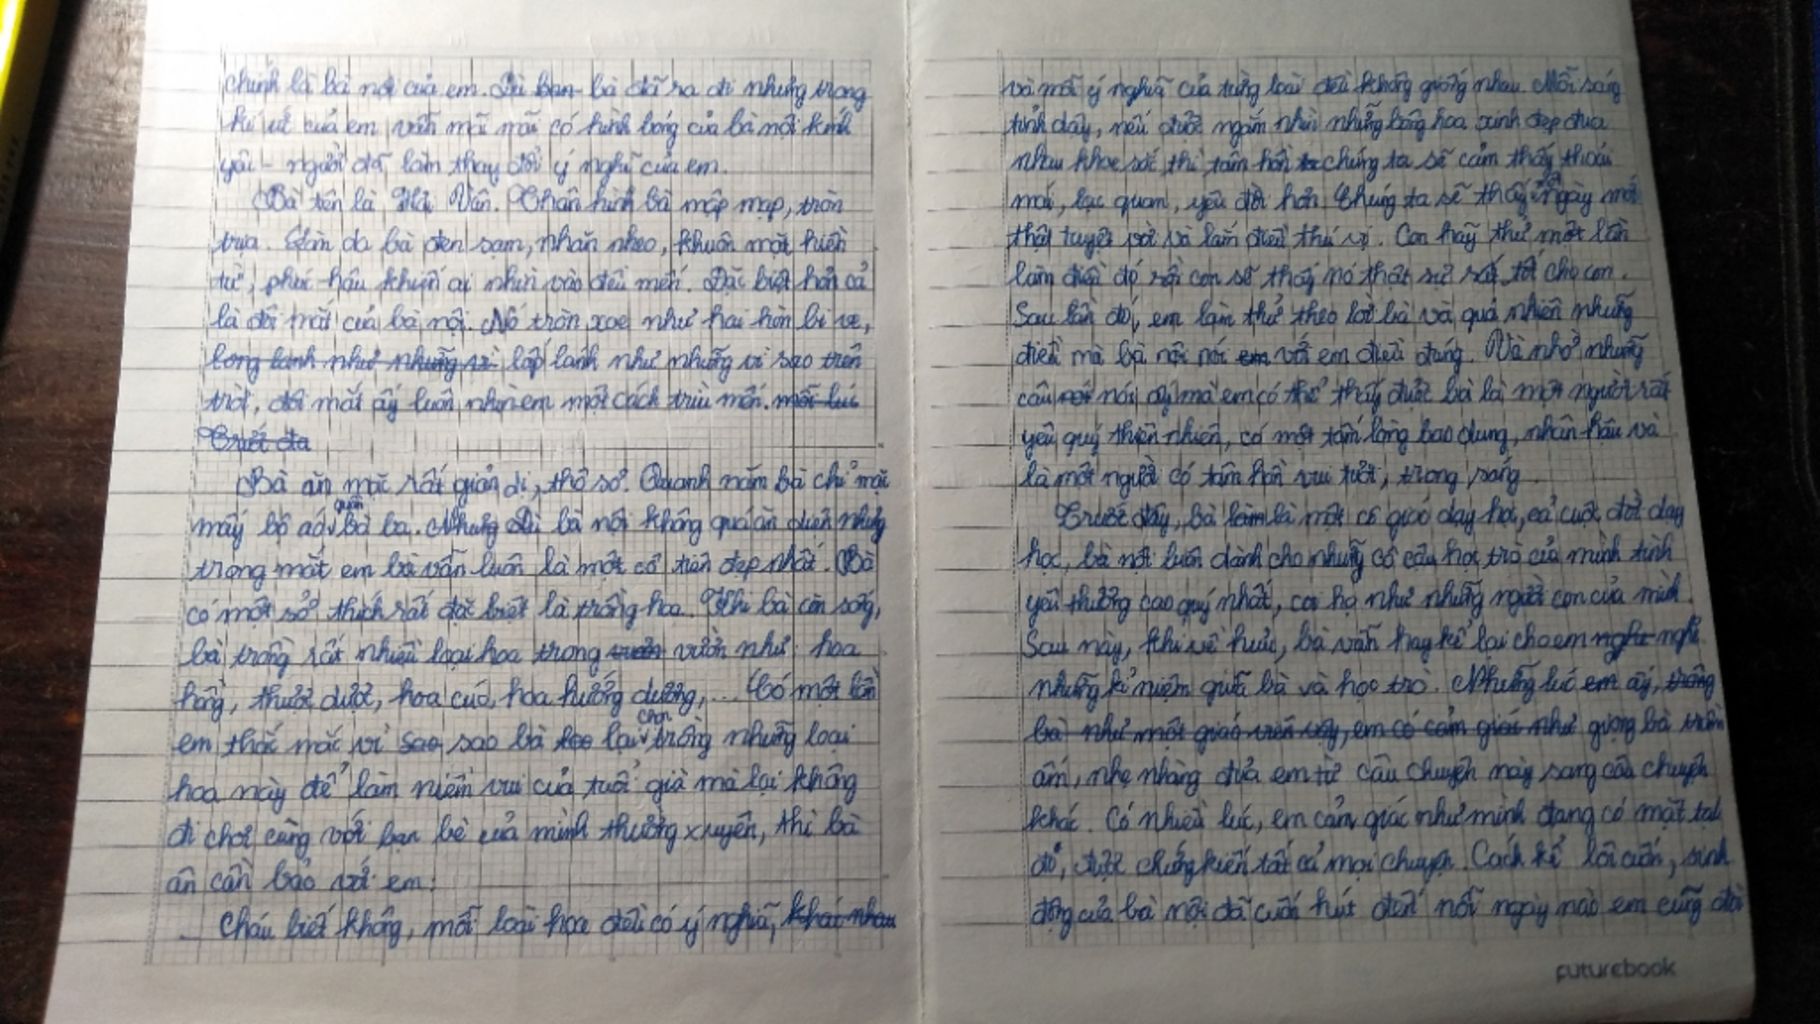 chính là bà nội của em. Dù ban bà đã ra đi nhưng trong
kí ức của em vẫn mãi mãi có hình bóng của bà nội kính
yêu - người đã làm thay đổi ý nghĩ của em.
Bà tên là Hải Vân. Thân hình bà mập mạp, tròn
trịa. Làn da bà đen sạm, nhăn nheo, khuôn mặt hiền
từ, phúc hậu khiến ai nhìn vào đều mến. Đặc biệt hơn cả
là đôi mắt của bà nội. Nó tròn xoe như hai hòn bi ve,
long lanh như những vì lấp lánh như những vì sao trên
trời, đôi mắt ấy luôn nhìn em một cách trìu mến. mỗi lúc
Trước đa
Bà ăn mặc rất giản dị, thô sơ. Quanh năm bà chỉ mặc
mấy bộ áo quần bà ba. Nhưng Dù bà nội không quá ăn diện nhưng
trong mắt em bà vẫn luôn là một cô tiên đẹp nhất. Bà
có một sở thích rất đặc biệt là trồng hoa. Khi bà còn sống,
bà trồng rất nhiều loại hoa trong vườn như: hoa
hồng, thược dược, hoa cúc, hoa hướng dương,... Có một lần
em thắc mắc vì sao sao bà lại chọn trồng những loại
hoa này để làm niềm vui của tuổi già mà lại không
đi chơi cùng với bạn bè của mình thường xuyên, thì bà
ân cần bảo với em:
- Cháu biết không, mỗi loài hoa đều có ý nghĩa, khác nhau
và mỗi ý nghĩa của từng loài đều không giống nhau. Mỗi sáng
tỉnh dậy, nếu được ngắm nhìn những bông hoa xinh đẹp đua
nhau khoe sắc, thì tâm hồn ta chúng ta sẽ cảm thấy thoải
mái, lạc quan, yêu đời hơn. Chúng ta sẽ thấy ngày mới
thật tuyệt vời và lắm điều thú vị. Con hãy thử một lần
làm điều đó rồi con sẽ thấy nó thật sự rất tốt cho con.
Sau lần đó, em làm thử theo lời bà và quả nhiên những
điều mà bà nội nói em với em điều đúng. Và nhờ những
câu nói nói ấy mà em có thể thấy được bà là một người rất
yêu quý thiên nhiên, có một tấm lòng bao dung, nhân hậu và
là một người có tâm hồn vui tươi, trong sáng.
Trước đây, bà làm là một cô giáo dạy học, cả cuộc đời dạy
học, bà nội luôn dành cho những cô cậu học trò của mình tình
yêu thương cao quý nhất, coi họ như những người con của mình.
Sau này, khi về hưu, bà vẫn hay kể lại cho em nghe nghe
những kỉ niệm giữa bà và học trò. Những lúc em ấy, trông
bà như một giáo viên vậy, em có cảm giác như giọng bà trầm
ấm, nhẹ nhàng đưa em từ câu chuyện này sang câu chuyện
khác. Có nhiều lúc, em cảm giác như mình đang có mặt tại
đó, được chứng kiến tất cả mọi chuyện. Cách kể lôi cuốn, sinh
động của bà nội đã cuốn hút đến nỗi ngày nào em cũng đòi
futurebook